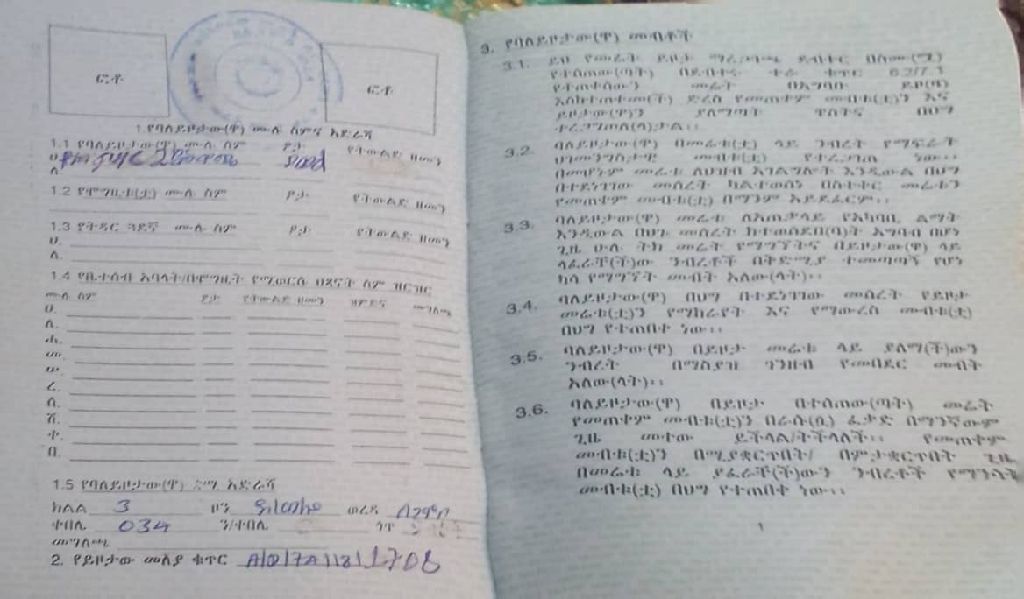 ፎቶ
ፎቶ
1. የባለይዞታው(ዋ) ሙሉ ስምና አድራሻ
1.1 የባለይዞታው(ዋ) ሙሉ ስም ፆታ የትውልድ ዘመን
ሀ.
ለ.
1.2 የሞግዚቱ(ቷ) ሙሉ ስም ፆታ የትውልድ ዘመን
1.3 የትዳር ጓደኛ ሙሉ ስም ፆታ የትውልድ ዘመን
ሀ.
ለ.
1.4 የቤተሰብ አባላት/በሞግዚት የሚወርሱ ህፃናት ስም ዝርዝር
ሙሉ ስም ፆታ የትውልድ ዘመን ዝምድና መግለጫ
ሀ.
ለ.
ሐ.
መ.
ሠ.
ረ.
ሰ.
ሸ.
ቀ.
በ.
1.5 የባለይዞታው(ዋ) አድራሻ
ክልል 3 ዞን ወረዳ
ቀበሌ 034 ን/ቀበሌ ጎጥ
መግለጫ
2. የይዞታው መለያ ቁጥር
3. የባለይዞታው(ዋ) መብቶች
3.1. ይህ የመሬት ይዞታ ማረጋገጫ ደብተር በስሙ(ሟ)
የተሰጠው(ጣት) በደብተሩ ተራ ቁጥር
የተጠቀሰውን መሬት በአግባቡ ይዞ(ዛ)
እስከተጠቀመ(ች) ድረስ የመጠቀም መብቱ(ቷ)ን እና
ይዞታው(ዋ)ን ያለማጣት ዋስትና በህግ
ተረጋግጦለ(ላ)ታል።
3.2. ባለይዞታው(ዋ) በመሬቱ(ቷ) ላይ ንብረት የማፍራት
ህገመንግስታዊ መብቱ(ቷ) የተረጋገጠ ነው።
በመሆኑም መሬቱ ለህዝብ አገልግሎት እንዲውል በህግ
በተደነገገው መሰረት ካልተወሰነ በስተቀር መሬቱን
የመጠቀም መብቱ(ቷ) በማንም አይደፈርም።
3.3. ባለይዞታው(ዋ) መሬቱ ለአጠቃላይ የአካባቢ ልማት
እንዲውል በህጉ መሰረት ከተወሰደበ(ባ)ት አግባብ በሆነ
ጊዜ ሁሉ ትክ መሬት የማግኘትና በይዞታው(ዋ) ላይ
ላፈራቸ(ች)ው ንብረቶች በቅድሚያ ተመጣጣኝ የሆነ
ካሳ የማግኘት መብት አለው(ላት)።
3.4. ባለይዞታው(ዋ) በህግ በተደነገገው መሰረት የይዞታ
መሬቱ(ቷ)ን የማከራየት እና የማውረስ መብቱ(ቷ)
በህግ የተጠበቀ ነው።
3.5. ባለይዞታው(ዋ) በይዞታ መሬቱ ላይ ያለማ(ች)ውን
ንብረት በማስያዝ ገንዘብ የመበደር መብት
አለው(ላት)።
3.6. ባለይዞታው(ዋ) በይዞታ በተሰጠው(ጣት) መሬት
የመጠቀም መብቱ(ቷ)ን በራሱ(ሷ) ፈቃድ በማንኛውም
ጊዜ መተው ይችላል/ትችላለች። የመጠቀም
መብቱ(ቷ)ን በሚያቋርጥበት/ በምታቋርጥበት ጊዜ
በመሬቱ ላይ ያፈራቸ(ች)ውን ንብረቶች የማንሳት
መብቱ(ቷ) በህግ የተጠበቀ ነው።
1